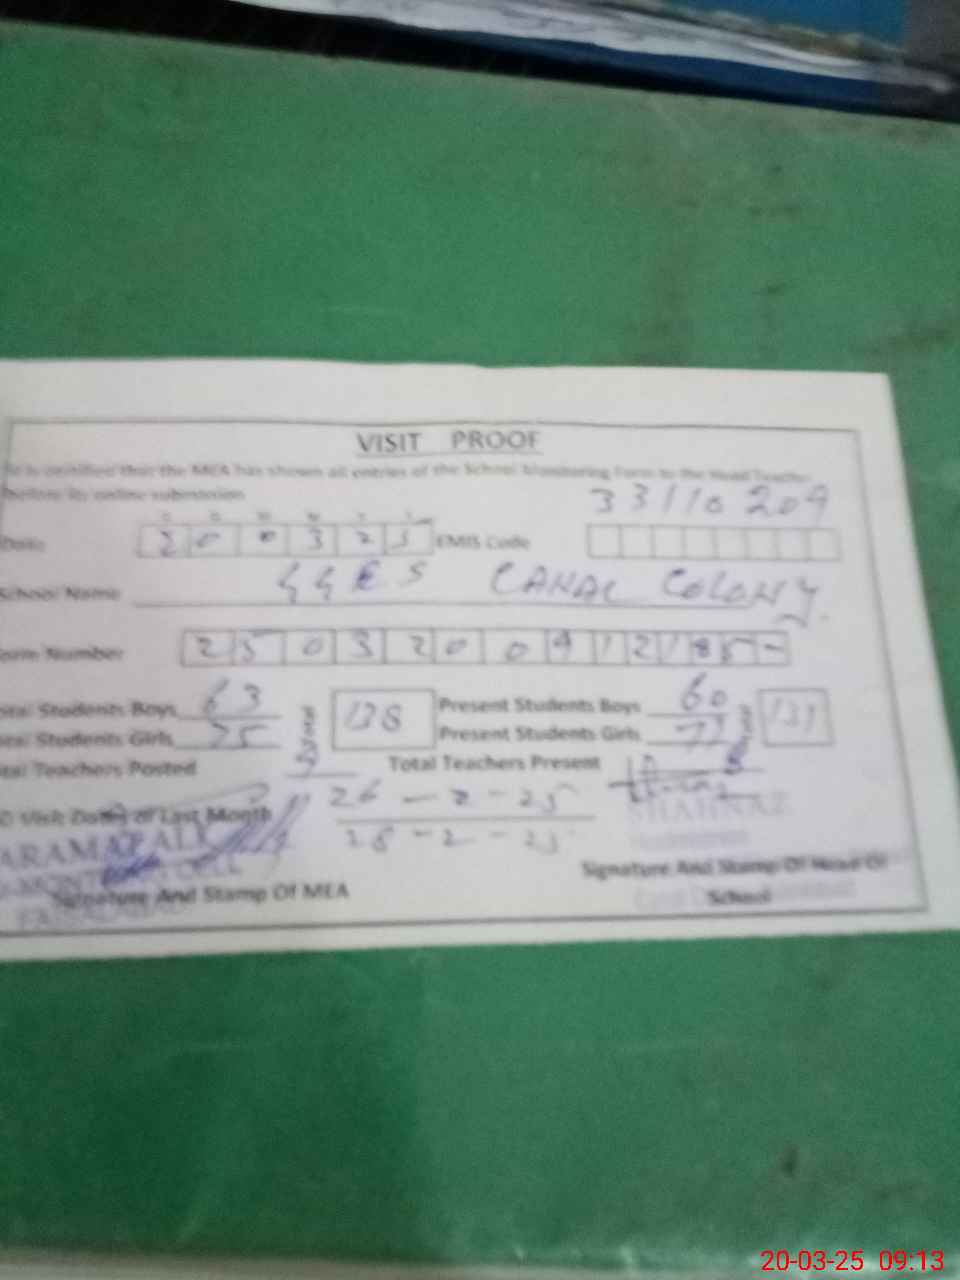 VISIT PROOF
It is certified that the MEA has shown all entries of the School Monitoring Form to the Head Teacher
before its online submission
33110209
Date 20 03 25 EMIS Code
School Name GGES CANAL COLONY
Form Number 25032009
Total Students Boys 63 138 Present Students Boys 60 131
Total Students Girls 75 Present Students Girls 71
Total Teachers Posted Total Teachers Present
Visit Dates of Last Month 26-2-25
SHAHNAZ
Signature And Stamp Of MEA
Signature And Stamp Of Head Of
School
20-03-25 09:13